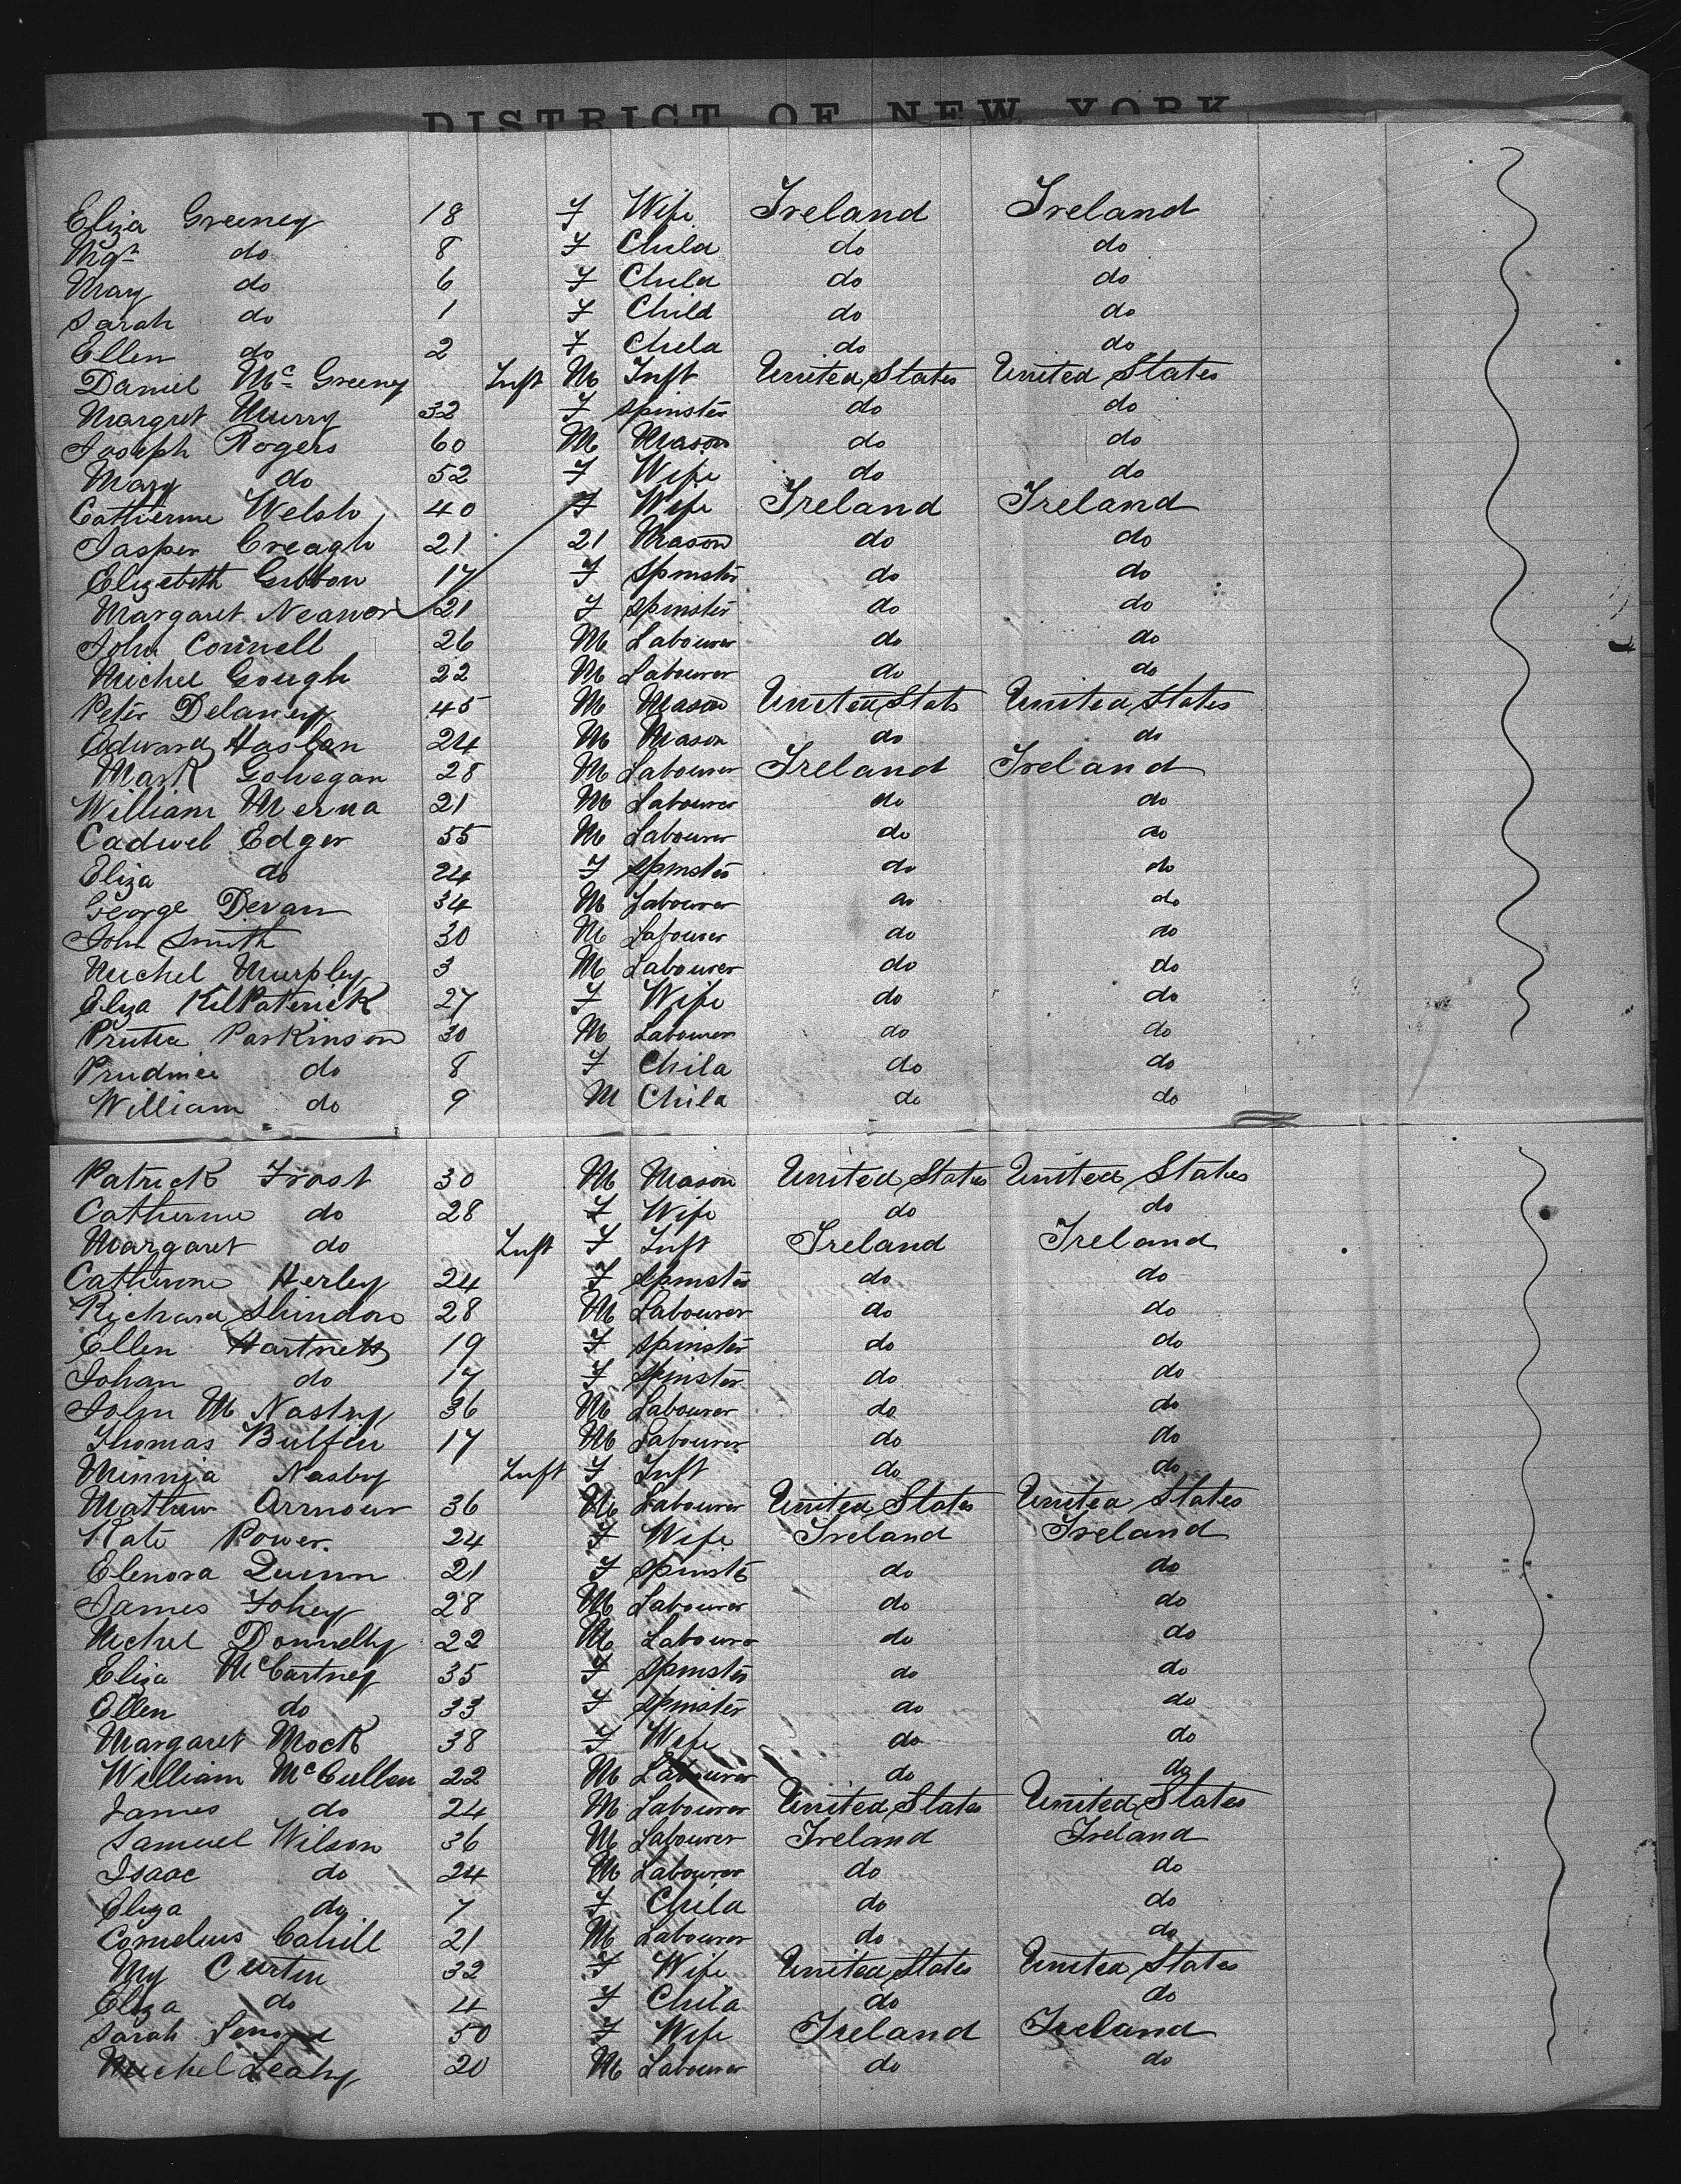 DISTRICT OF NEW YORK
Eliza Greeney 18 F Wife Ireland Ireland
Mgt do 8 F Child do do
Mary do 6 F Child do do
Sarah do 1 F Child do do
Ellen do 2 F Child do do
Daniel Mc Greeny Inft M Inft United States United States
Margret Murry 32 F Spinster do do
Joseph Rogers 60 M Mason do do
Mary do 52 F Wife do do
Catherine Welsh 40 F Wife Ireland Ireland
Jasper Creagh 21 21 Mason do do
Elizebeth Gibbon 17 F Spinster do do
Margaret Neanor 21 F Spinster do do
John Connell 26 M Labourer do do
Michel Gough 22 M Labourer do do
Peter Delaney 45 M Mason United Stats United States
Edward Haslan 24 M Mason do do
Mark Gohegan 28 M Labourer Ireland Ireland
William Merna 21 M Labourer do do
Cadwel Edger 55 M Labourer do do
Eliza do 24 F Spinster do do
George Devan 34 M Labourer do do
John Smith 30 M Labourer do do
Michel Murphy 3 M Labourer do do
Eliza KilPaterick 27 F Wife do do
Parkinson 30 M Labourer do do
do 8 F Child do do
William do 9 M Child do do
Patrick Frost 30 M Mason United States United States
Catherine do 28 F Wife do do
Margaret do Inft F Inft Ireland Ireland
Catherine Herley 24 F Spinster do do
Richard 28 M Labourer do do
Ellen Hartnett 19 F Spinster do do
Johan do 17 F Spinster do do
John M Nasby 36 M Labourer do do
Thomas Bulfin 17 M Labourer do do
Minnia Nasby Inft F Inft do do
Mathew Armour 36 M Labourer United States United States
Kate Power 24 F Wife Ireland Ireland
Elenora Quinn 21 F Spinster do do
James Fohey 28 M Labourer do do
Michel Donnelly 22 M Labourer do do
Eliza McCartney 35 F Spinster do do
Ellen do 33 F Spinster do do
Margaret Mock 38 F Wife do do
William McCullen 22 M Labourer do do
James do 24 M Labourer United States United States
Samuel Wilson 36 M Labourer Ireland Ireland
Isaac do 24 M Labourer do do
Eliza do 7 F Child do do
Cornelius Cahill 21 M Labourer do do
My Curtin 32 F Wife United States United States
Eliza do 4 F Child do do
Sarah 50 F Wife Ireland Ireland
Michel Leahy 20 M Labourer do do